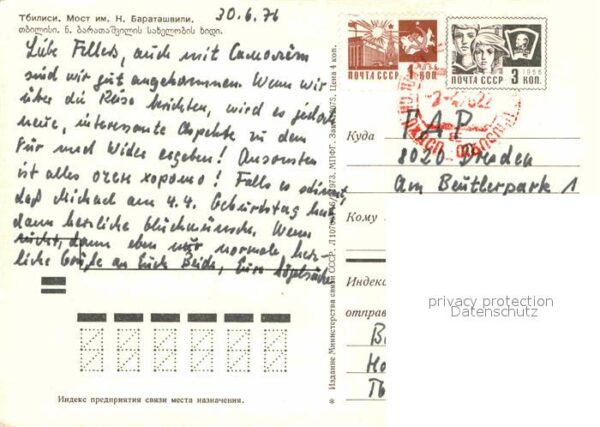 Тбилиси. Мост им. Н. Бараташвили.
თბილისი. ნ. ბარათაშვილის სახელობის ხიდი.
30.6.76
Liebe Fellers, auch mit Самолём
sind wir gut angekommen. Wenn wir
über die Reise berichten, wird es jedoch
neue, interessante Aspekte zu dem
Für und Wider ergeben! Ansonsten
ist alles очень хорошо! Falls es stimmt,
daß Michael am 4.4. Geburtstag hat,
dann herzliche Glückwünsche. Wenn
nicht, dann eben nur normale herz-
liche Grüße an Euch Beide, Eure
Индекс предприятия связи места назначения.
Издание Министерства связи СССР.
Цена 4 коп.
ПОЧТА СССР 1 КОП.
ПОЧТА СССР 3 КОП.
1966
Куда
TAP
8020 Dresden
Am Beutlerpark 1
Кому
Индекс
отправ
privacy protection
Datenschutz